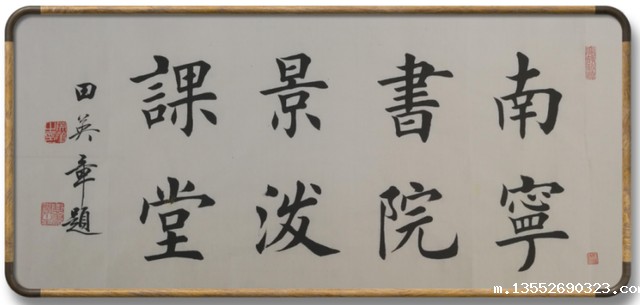 南寧
書院
景泼
課堂
田英章題
m.13552690323.co